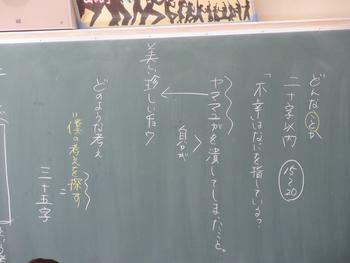 どんなことか
二十字以内
15〜20
「不幸はなにを指しているか」
ヤママユガを潰してしまったこと。
自分が
美しい珍しいガ
どのような考え
僕の考えを探す
三十五字